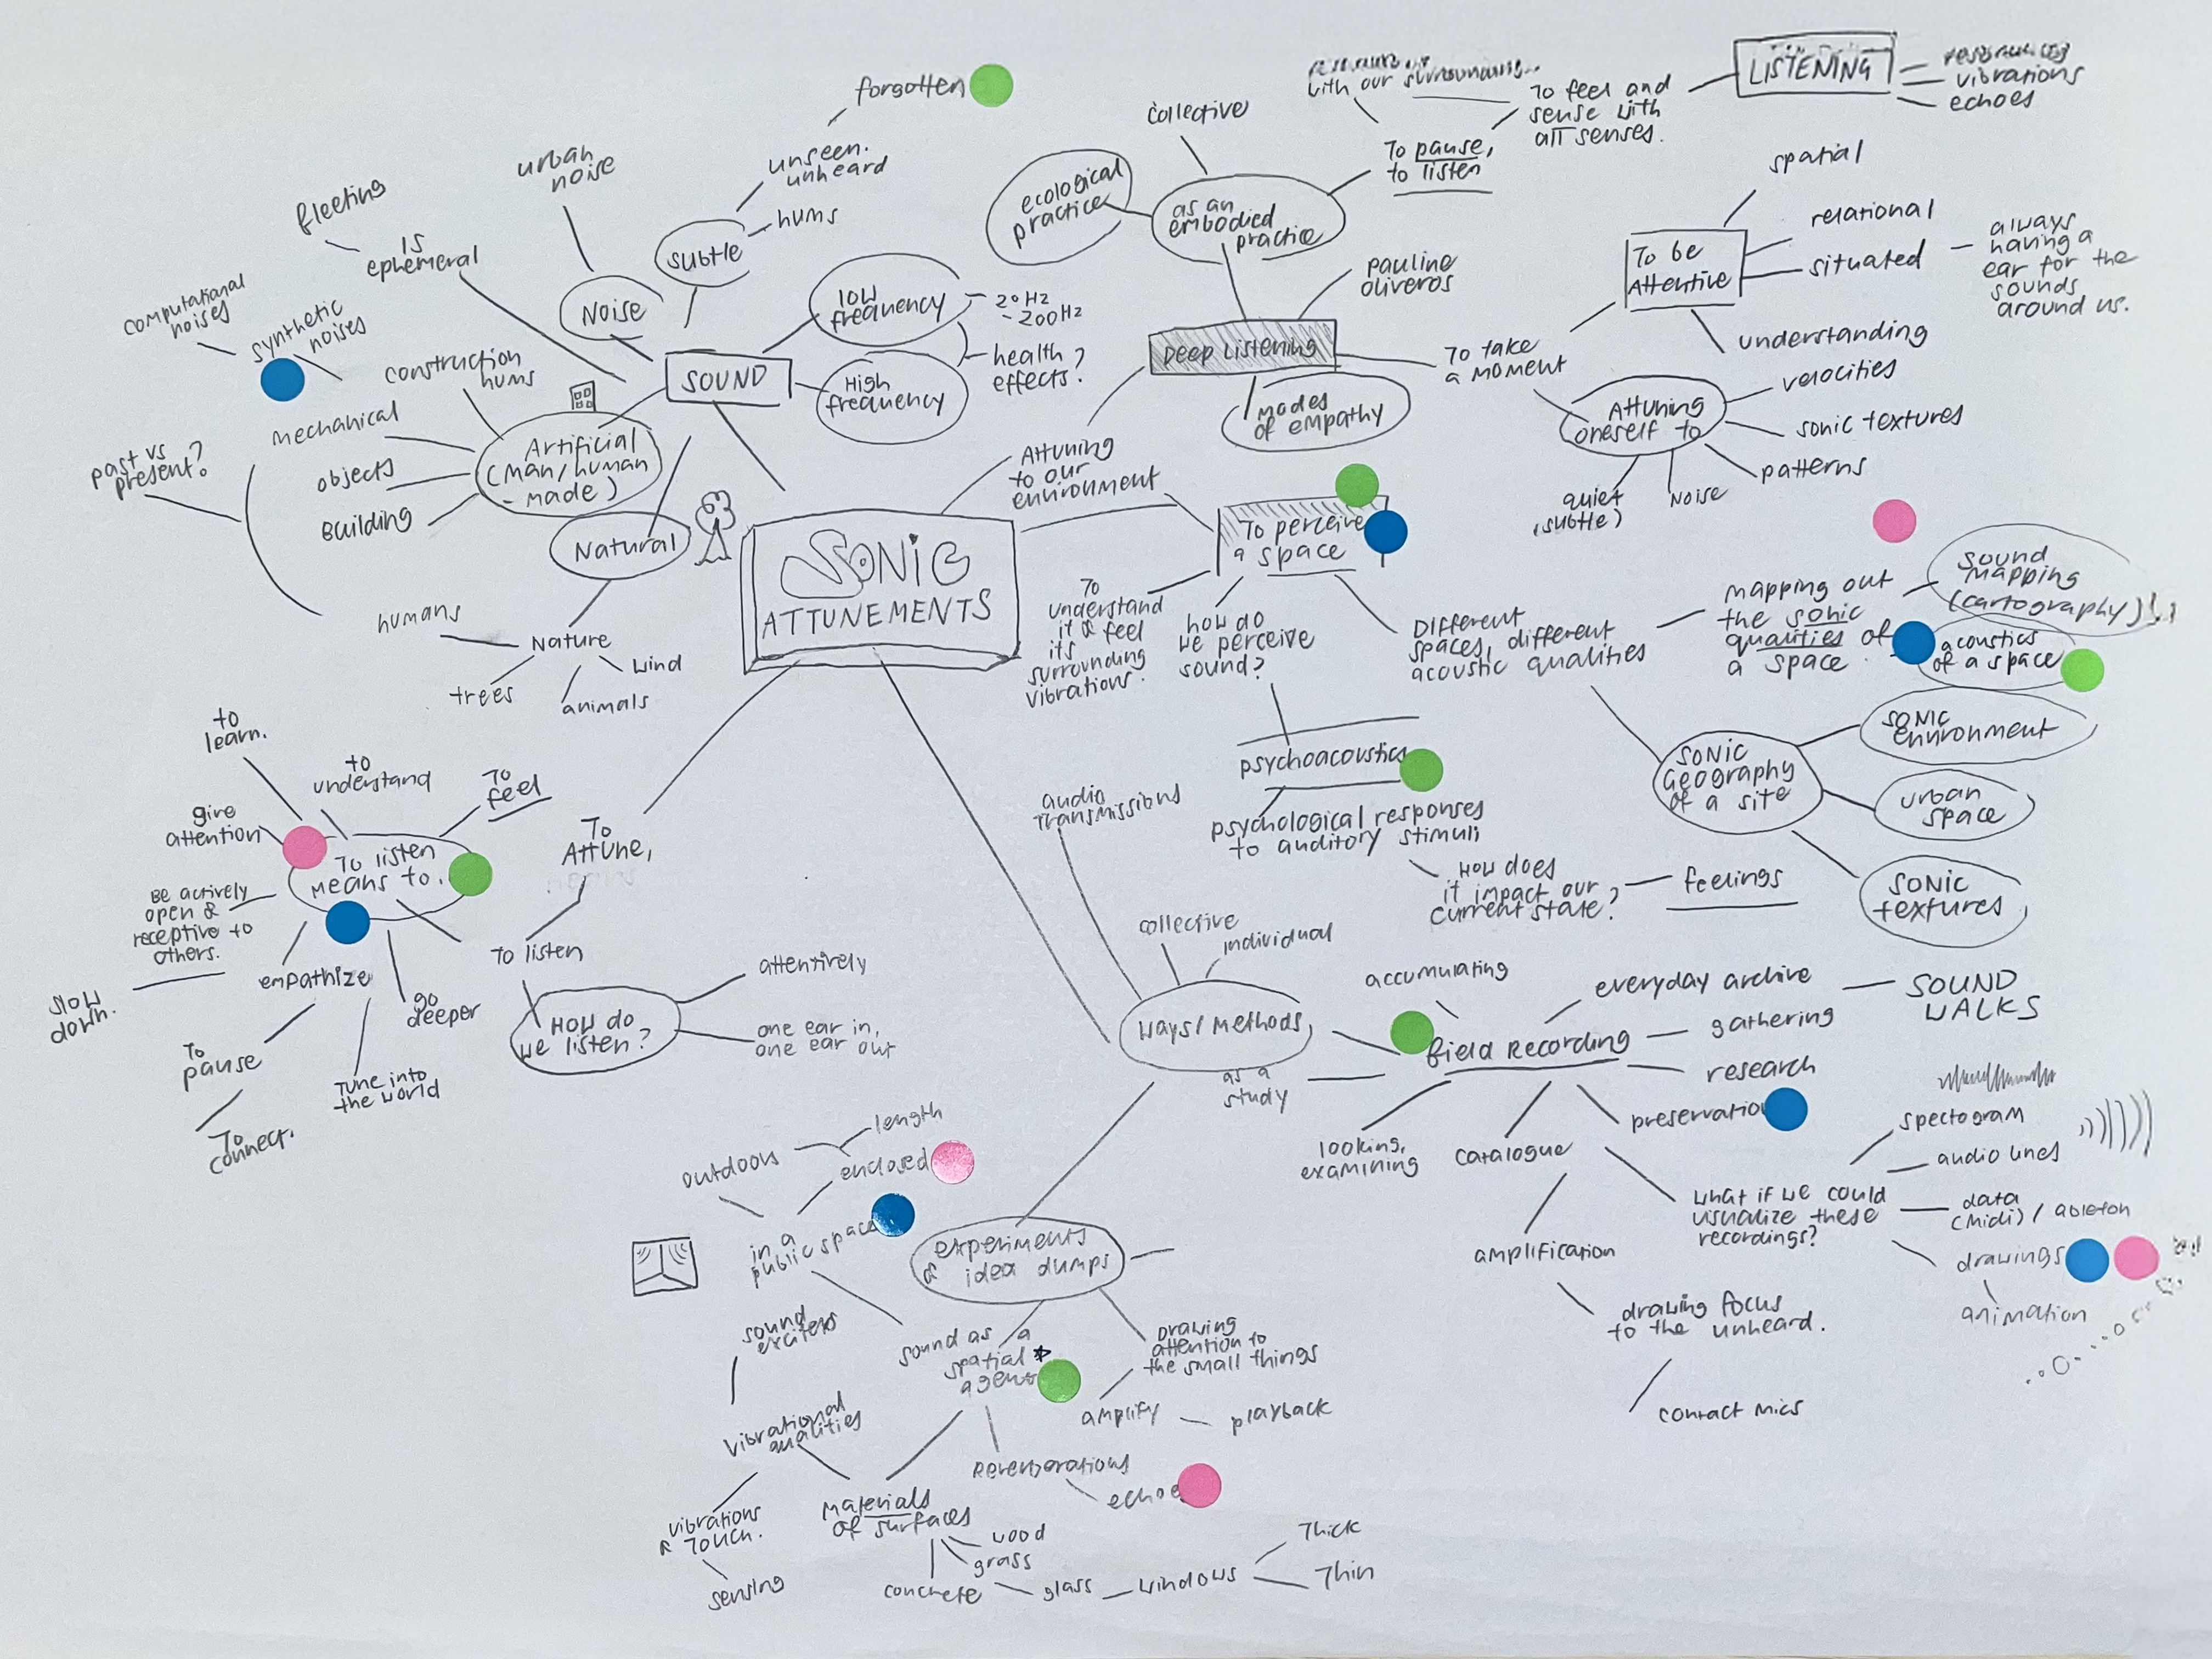 forgotten
unseen.
unheard
hums
subtle
urban
noise
Noise
fleeting
is
ephemeral
computational
noises
synthetic
noises
construction
hums
mechanical
objects
Building
past vs
present?
Artificial
(man/human
-made)
SOUND
low
frequency
20Hz
- 200Hz
High
frequency
health
effects?
Natural
Nature
humans
trees
animals
wind
SONIC
ATTUNEMENTS
Attuning
to our
environment
Deep Listening
Pauline
Oliveros
modes
of empathy
as an
embodied
practice
ecological
practice
collective
To pause,
to listen
with our surroundings..
To feel and
sense with
all senses.
LISTENING
vibrations
echoes
To take
a moment
To be
Attentive
spatial
relational
situated
always
having a
ear for the
sounds
around us.
understanding
Attuning
oneself to
velocities
sonic textures
patterns
Noise
quiet
(subtle)
To perceive
a space
To
understand
it & feel
its
surrounding
vibrations.
how do
we perceive
sound?
Different
spaces, different
acoustic qualities
mapping out
the sonic
qualities of
a space.
sound
mapping
(cartography)
acoustics
of a space
sonic
geography
of a site
sonic
environment
urban
space
sonic
textures
psychoacoustics
psychological responses
to auditory stimuli
How does
it impact our
current state?
feelings
To
Attune,
To listen
How do
we listen?
attentively
one ear in,
one ear out
To listen
means to.
to
learn.
to
understand
To
feel
give
attention
Be actively
open &
receptive to
others.
slow
down.
empathize
go
deeper
To
pause
To
connect.
Tune into
the world
ways/methods
audio
transmissions
collective
individual
field Recording
accumulating
everyday archive
SOUND
WALKS
gathering
research
preservatio
as a
study
looking,
examining
catalogue
amplification
drawing focus
to the unheard.
contact mics
what if we could
visualize these
recordings?
spectogram
audio lines
data
(midi) / ableton
drawings
animation
experiments
& idea dumps
in a
public space
outdoors
enclosed
length
sound as a
spatial
agent
Drawing
attention to
the small things
amplify
playback
Reverberations
echoe
materials
of surfaces
wood
grass
concrete
glass
windows
Thick
Thin
sound
exciters
vibrational
qualities
vibrations
& Touch.
sensing